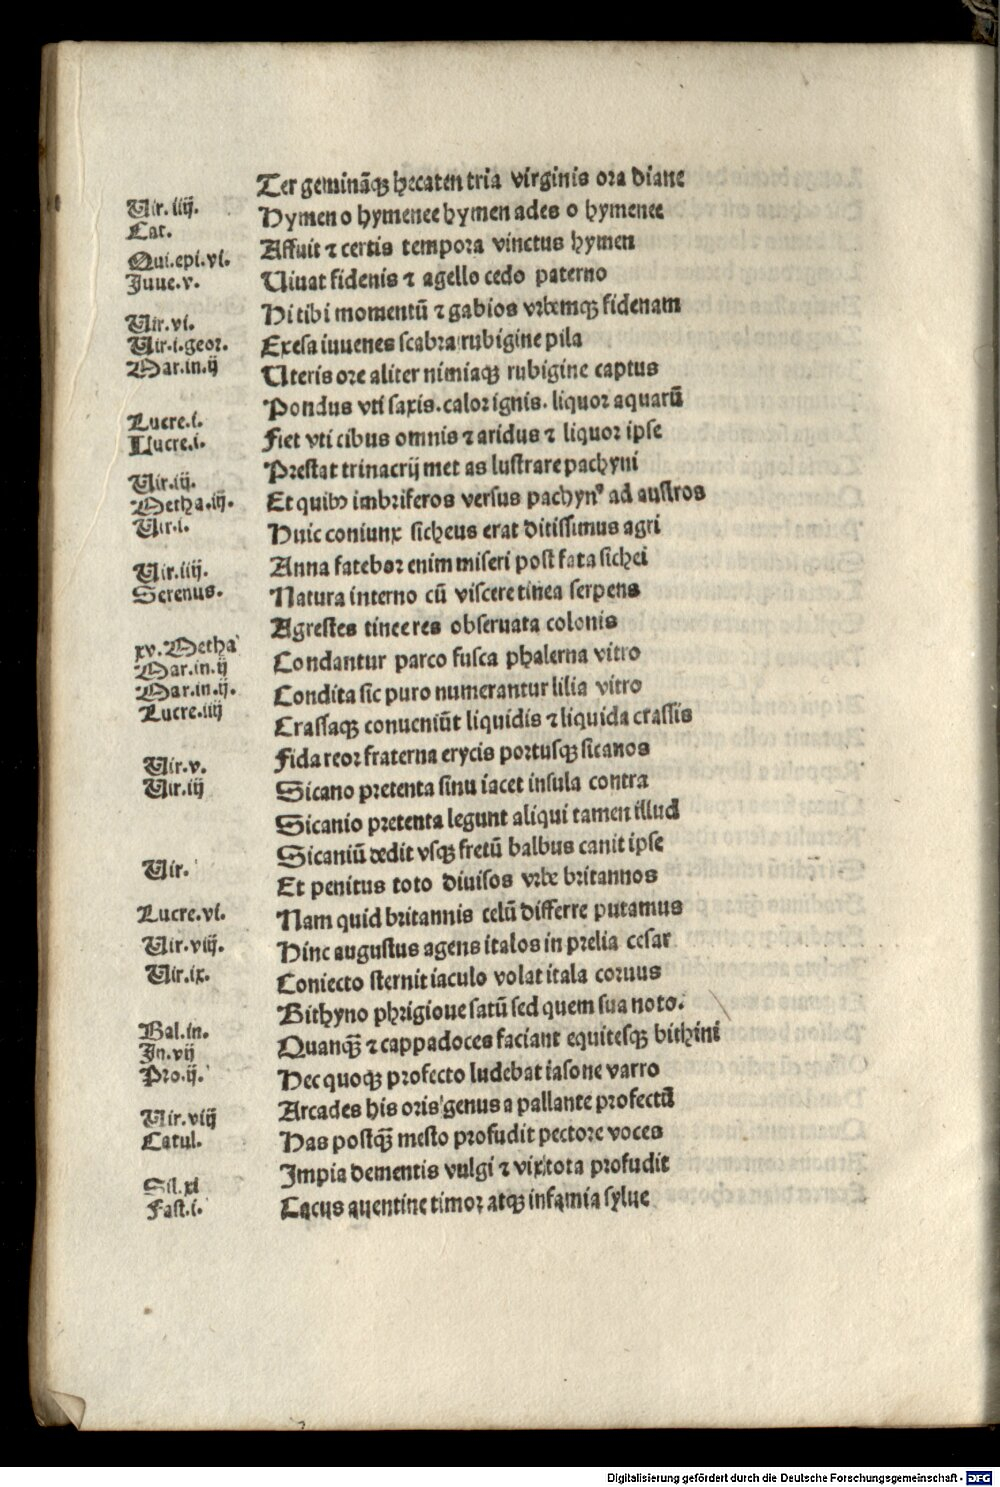 Ter geminãqꝫ hecaten tria virginis ora diane
Uir.iiij.
Hymen o hymenee hymen ades o hymenee
Cat.
Affuit ⁊ certis tempora vinctus hymen
Oui.epi.vi.
Uiuat fidenis ⁊ agello cedo paterno
Juue.v.
Hi tibi momentũ ⁊ gabios vrbemqꝫ fidenam
Uir.vi.
Exesa iuuenes scabra rubigine pila
Uir.i.geor.
Uteris ore aliter nimiaqꝫ rubigine captus
Mar.in.ij
Pondus vti saxis. calor ignis. liquor aquarũ
Lucre.i.
Fiet vti cibus omnis ⁊ aridus ⁊ liquor ipse
Llucre.i.
Prestat trinacrij met as lustrare pachyni
Uir.iij.
Et quibꝫ imbriferos versus pachynꝰ ad austros
Metha.iij.
Huic coniunx sicheus erat ditissimus agri
Uir.i.
Anna fatebor enim miseri post fata sichei
Uir.iiij.
Natura interno cũ viscere tinea serpens
Serenus.
Agrestes tinee res obseruata colonis
xv.Metha
Condantur parco fusca phalerna vitro
Mar.in.ij
Condita sic puro numerantur lilia vitro
Mar.in.ij.
Crassaqꝫ conueniũt liquidis ⁊ liquida crassis
Lucre.iiij
Fida reor fraterna erycis portusqꝫ sicanos
Uir.v.
Sicano pretenta sinu iacet insula contra
Uir.iij
Sicanio pretenta legunt aliqui tamen illud
Sicaniũ dedit vsqꝫ fretũ balbus canit ipse
Uir.
Et penitus toto diuisos vrbe britannos
Lucre.vi.
Nam quid britannis celũ differre putamus
Uir.viij.
Hinc augustus agens italos in prelia cesar
Uir.ix.
Coniecto sternit iaculo volat itala cornus
Bithyno phrigioue satũ sed quem sua noto.
Bal.in.
Quanqꝫ̃ ⁊ cappadoces faciant equitesqꝫ bithini
In.vij
Hec quoqꝫ profecto ludebat iasone varro
Pro.ij.
Arcades his oris genus a pallante profectũ
Uir.viij
Has postqꝫ̃ mesto profudit pectore voces
Catul.
Impia dementis vulgi ⁊ vix tota profudit
Sil.xi
Cacus auentine timor atqꝫ infamia sylue
Fast.i.
Digitalisierung gefördert durch die Deutsche Forschungsgemeinschaft - DFG